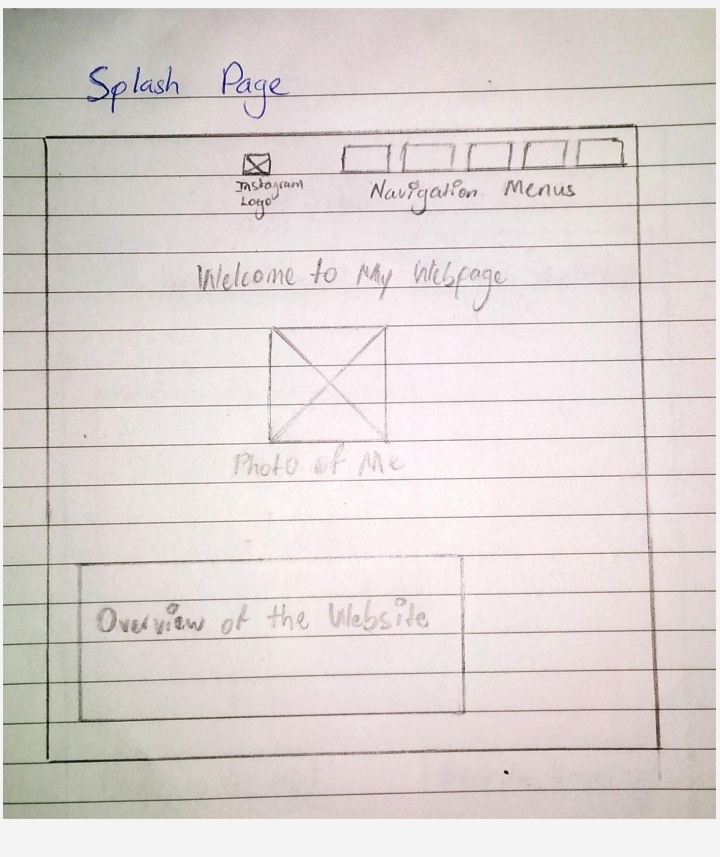 Splash Page
Instagram
Logo
Navigation Menus
Welcome to My Webpage
Photo of Me
Overview of the Website